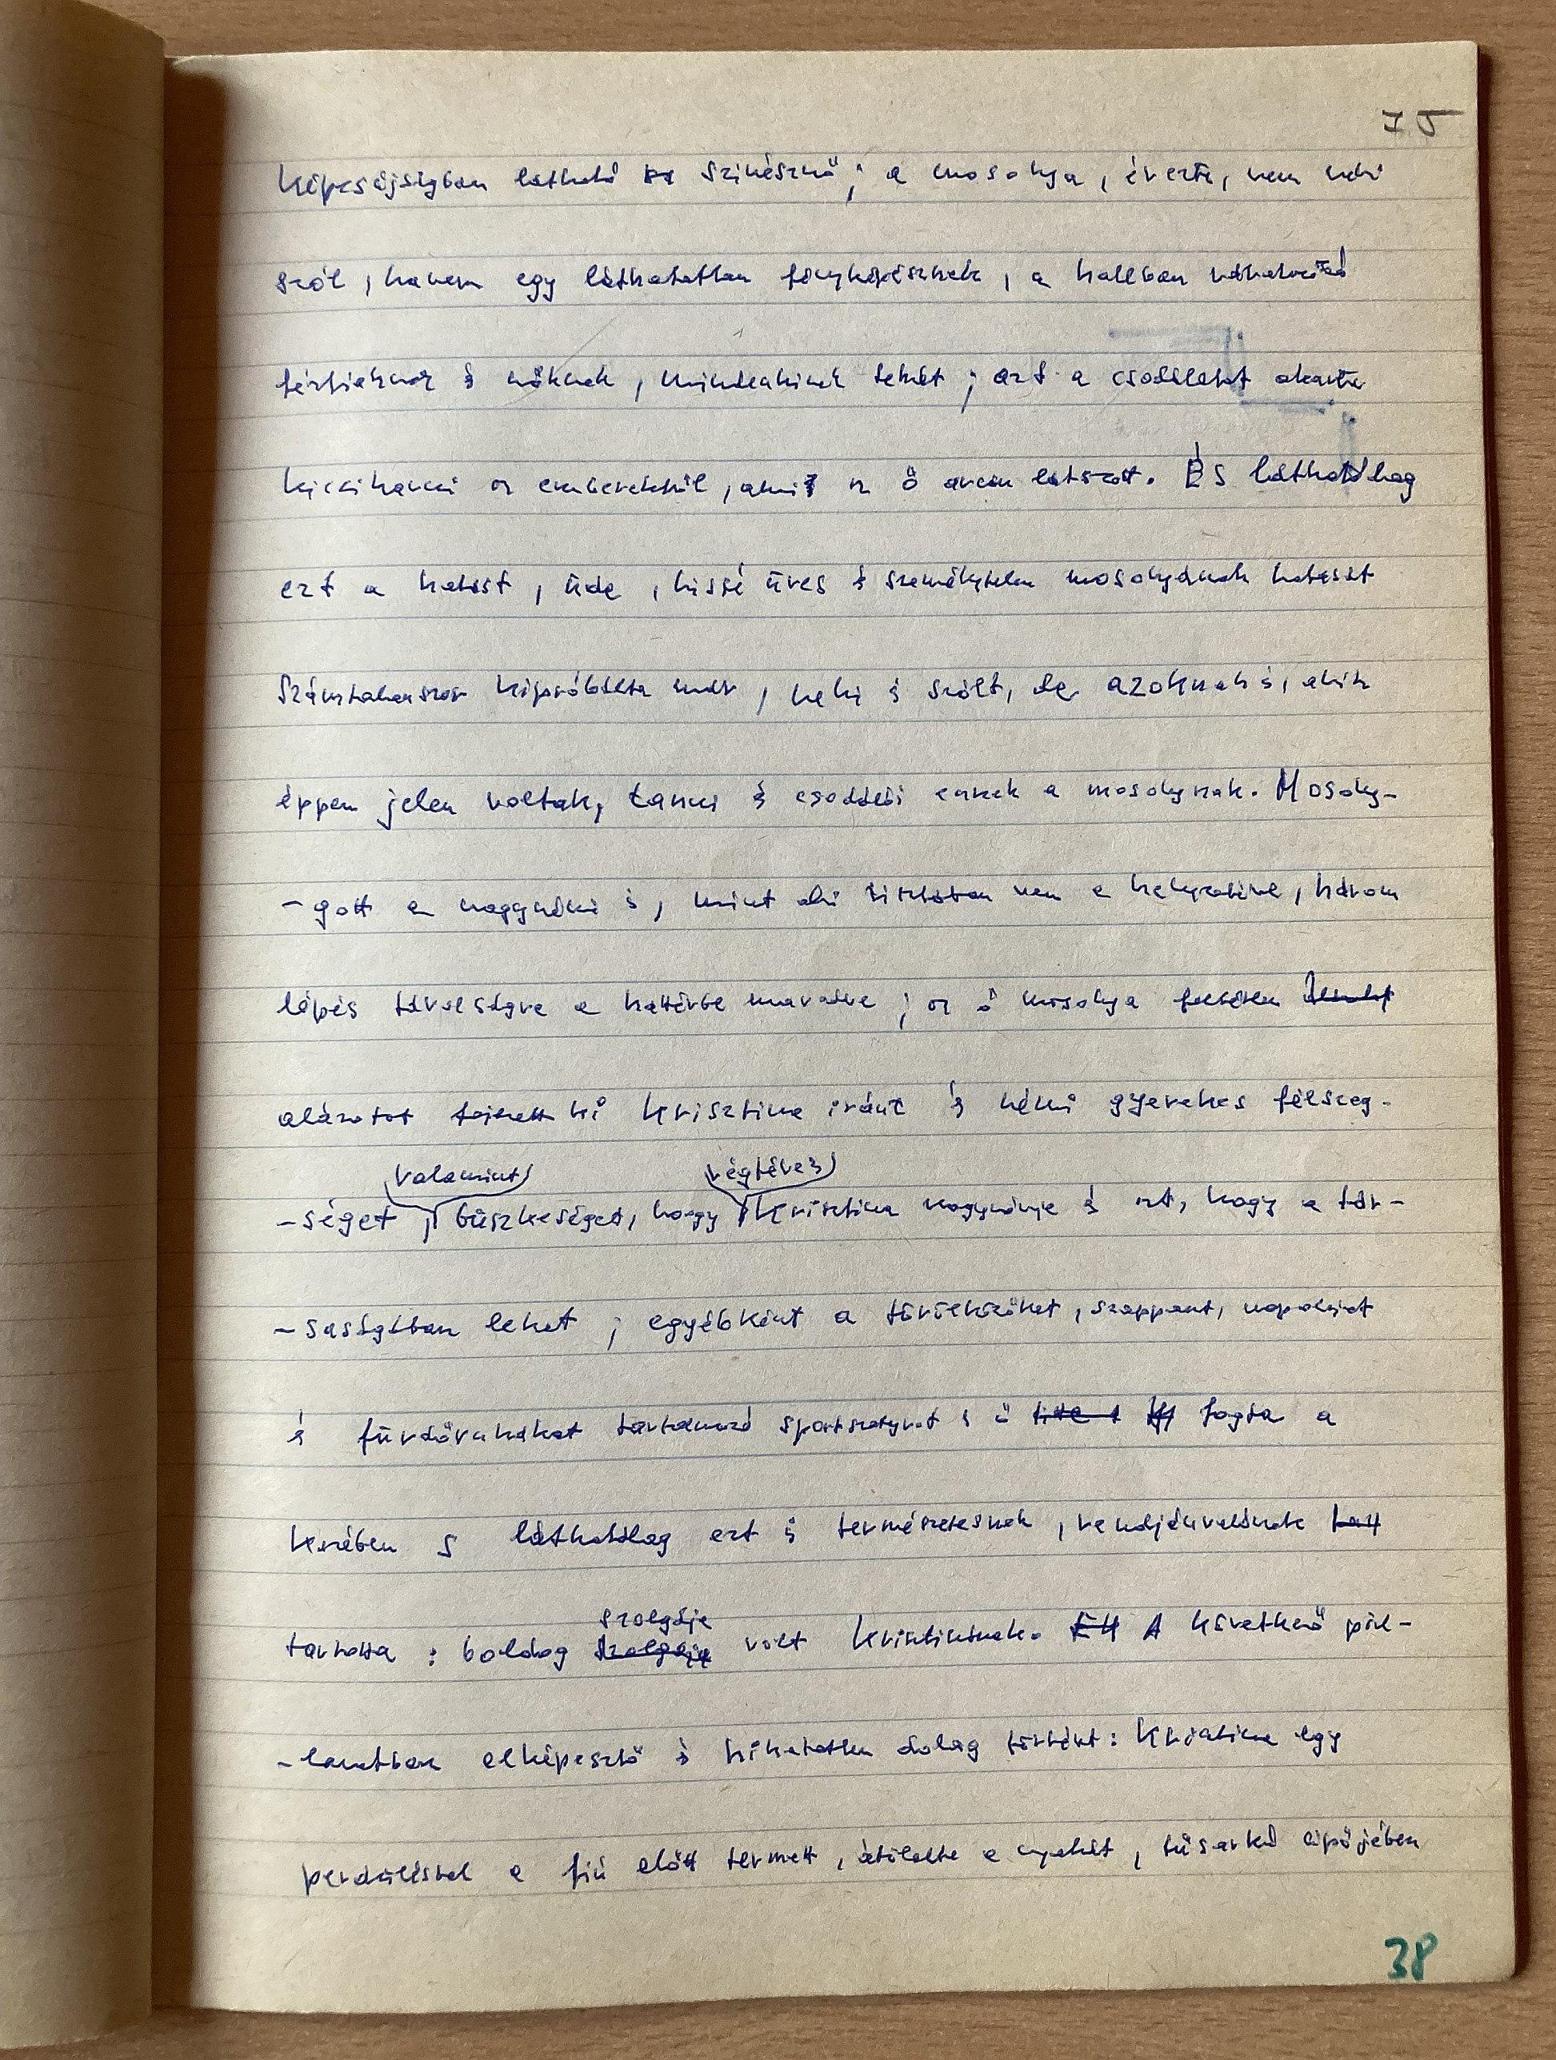 75
képesújságban látható színésznő; a mosolya, érezte, nem neki
szól, hanem egy láthatatlan fényképésznek, a hallban várakozó
férfiaknak és nőknek, mindenkinek tehát; azt a csodálatot akarta
kicsikarni az emberekből, ami az ő arcán látszott. És láthatólag
ezt a hatást, üde, kissé üres és személytelen mosolyának hatását
számtalanszor kipróbálta már, neki is szólt, de azoknak is, akik
éppen jelen voltak, tanui és csodálói ennek a mosolynak. Mosoly-
-gott a nagynéni is, mint aki tisztában van a helyzetével, három
lépés távolságra a háttérbe maradva; az ő mosolya feltétlen
alázatot fejezett ki Krisztina iránt és némi gyerekes félszeg-
valamint végtére is
-séget, büszkeséget, hogy Krisztina nagynénje és azt, hogy a tár-
-saságában lehet; egyébként a törülközőket, szappant, napolajat
és fürdőruhákat tartalmazó sportszatyrot is ő fogta a
kezében s láthatólag ezt is természetesnek, rendjénvalónak
szolgája
tartotta: boldog szolgája volt Krisztinának. A következő pil-
-lanatban elképesztő és hihetetlen dolog történt: Krisztina egy
perdüléssel a fiú előtt termett, átölelte a nyakát, tűsarkú cipőjében
38